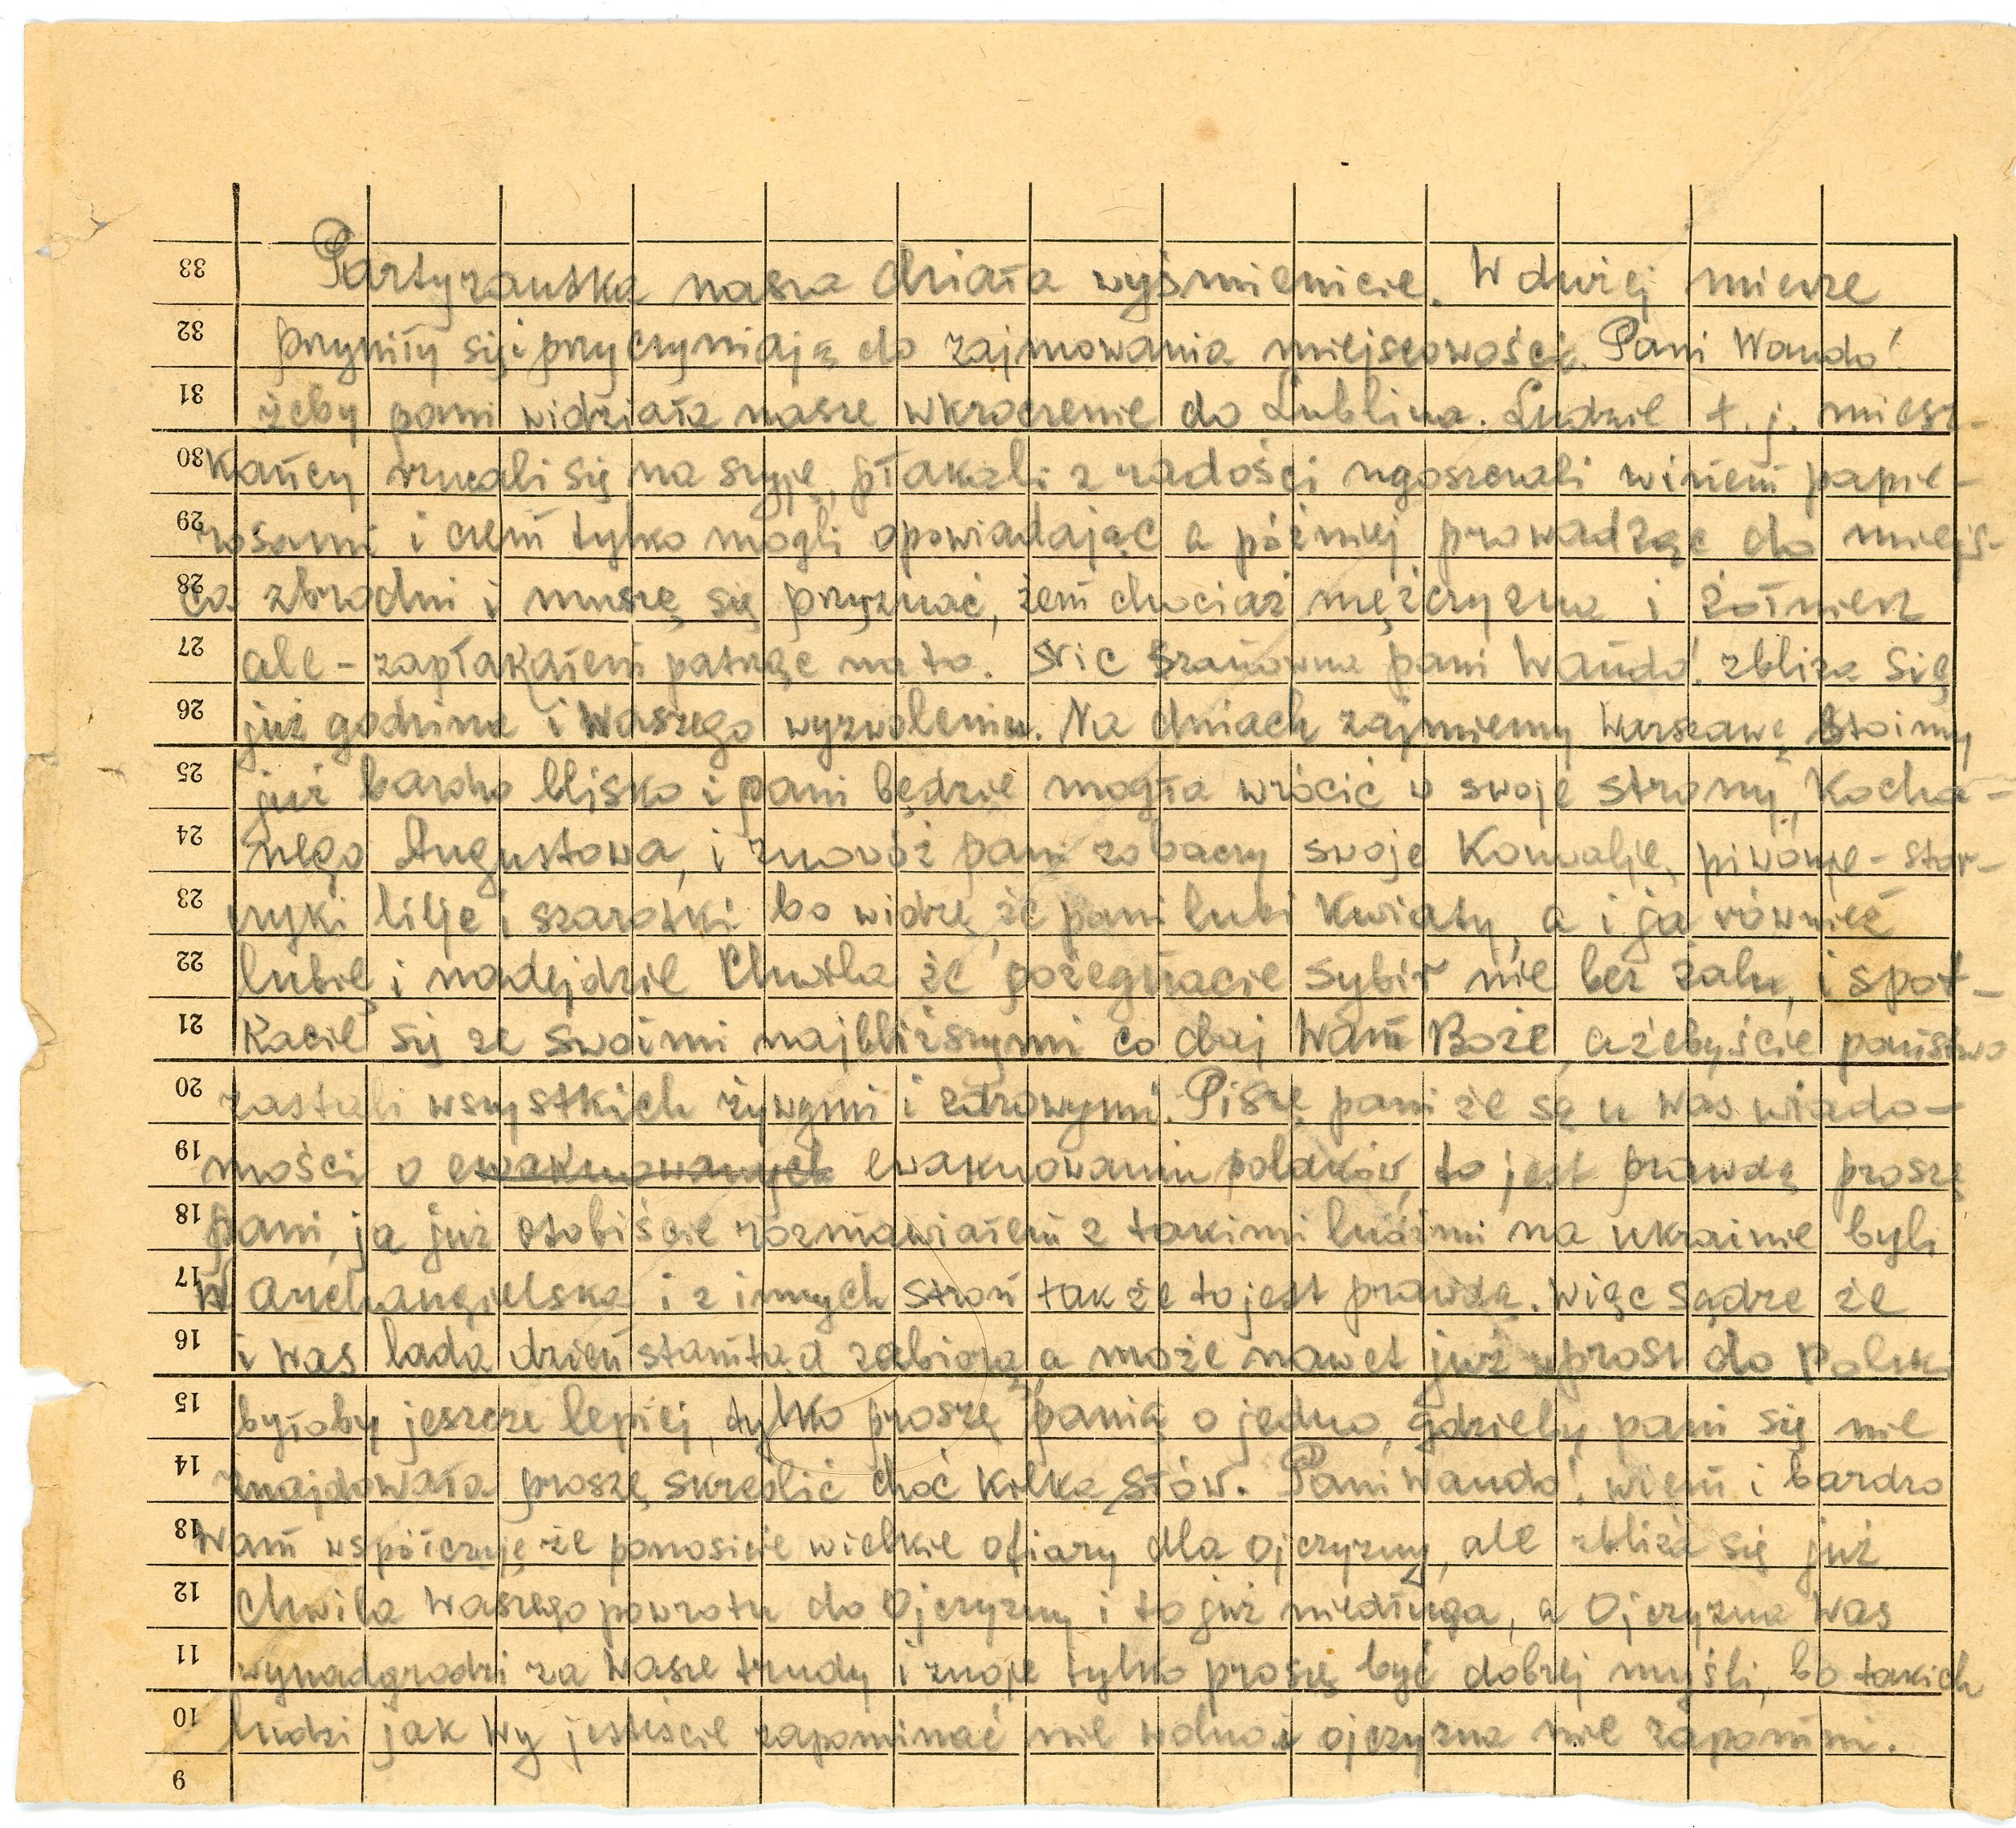 33 Partyzantka nasza działa wyśmienicie. W dużej mierze
32 się i przyczyniają do zajmowania miejscowości. Pani Wando!
31 żeby pani widziała nasze wkroczenie do Lublina. Ludzie t.j. miesz-
30 kańcy rzucali się na szyję, płakali z radości ugoszczali winem papie-
29 rosami i czem tylko mogli opowiadając a później prowadząc do miejs-
28 ca zbrodni i muszę się przyznać, żem chociaż mężczyzna i żołnierz
27 ale - zapłakałem patrząc na to. Nic Szanowna pani Wando! zbliża się
26 już godzina i Waszego wyzwolenia. Na dniach zajmiemy Warszawę Stoimy
25 już bardzo blisko i pani będzie mogła wrócić w swoje strony, Kocha-
24 nego Augustowa, i znowóż pani zobaczy swoje Konwalje, piwonje - stor-
23 czyki lilje i szarotki bo widzę, że pani lubi Kwiaty, a i ja również
22 lubię, i nadejdzie Chwila że pożegnacie Sybir nie bez żalu, i spot-
21 Kacie się ze swoimi najbliższymi co daj Wam Boże, ażebyście państwo
20 zastali wszystkich żywymi i zdrowymi. Pisze pani że są u Was wiado-
19 mości o ewakuowanych ewakuowaniu polaków, to jest prawdą proszę
18 pani, ja już osobiście rozmawiałem z takimi ludźmi na ukrainie byli
17 z Archangielska i z innych stron tak że to jest prawdą. Więc sądzę że
16 i Was lada dzień stamtąd zabiorą, a może nawet już wprost do Polski
15 byłoby jeszcze lepiej, tylko proszę panią o jedno, gdzieby pani się nie
14 znajdowała proszę skreślić choć Kilka słów. Pani Wando! wiem i bardzo
13 Wam współczuję że ponosicie wielkie ofiary dla Ojczyzny, ale zbliża się już
12 Chwila Waszego powrotu do Ojczyzny i to już niedługa, a Ojczyzna Was
11 wynadgrodzi za Wasze trudy i znoje tylko proszę być dobrej myśli, bo takich
10 ludzi jak Wy jesteście zapominać nie wolno i ojczyzna nie zapomni.
9